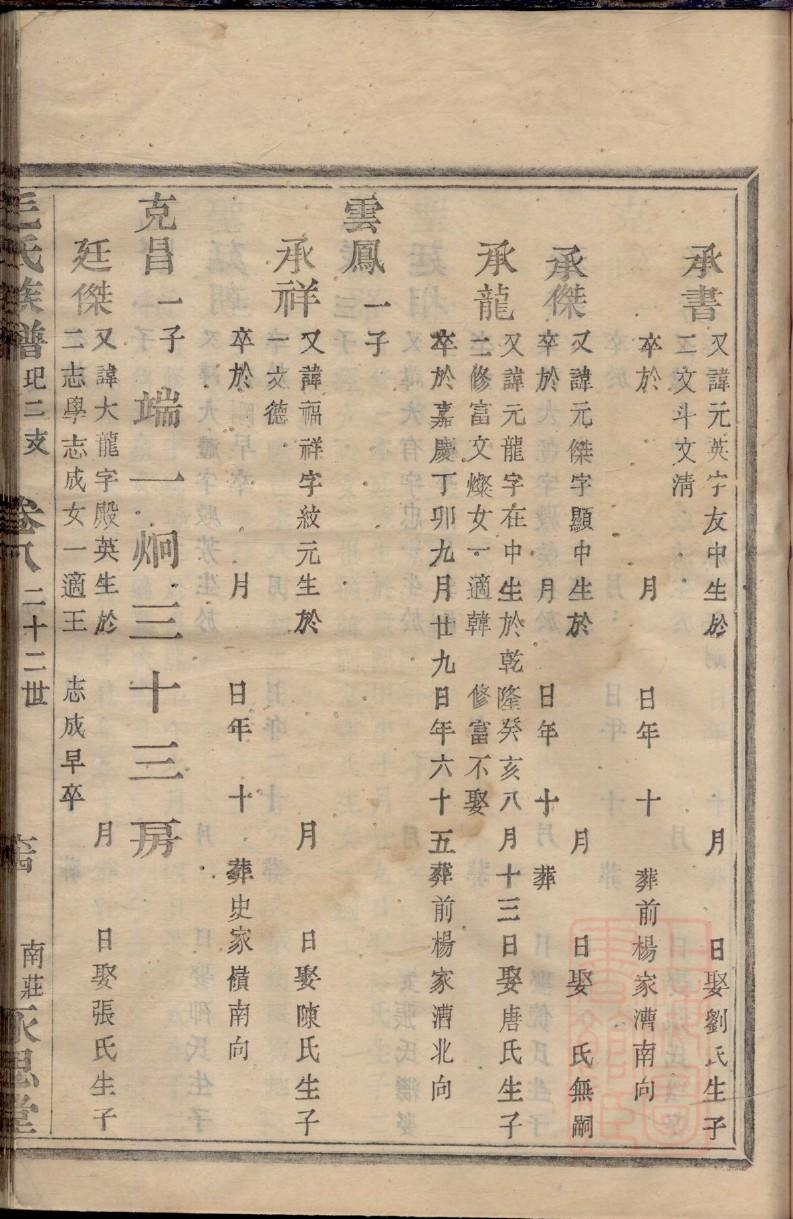 承書又諱元英字友中生於 月 日娶劉氏生子
二文斗文淸
卒於 月 日年 十 葬前楊家漕南向
承傑又諱元傑字顯中生於 月 日娶 氏無嗣
卒於 月 日年 十 葬
承龍又諱元龍字在中生於乾隆癸亥八月十三日娶唐氏生子
二修富文燦女一適韓 修富不娶
卒於嘉慶丁卯九月廿九日年六十五葬前楊家漕北向
雲鳳一子
承祥又諱福祥字紋元生於 月 日娶陳氏生子
一文德
卒於 月 日年 十 葬史家嶺南向
克昌一子 端一炯三十三房
廷傑又諱大龍字殿英生於 月 日娶張氏生子
二志學志成女一適王 志成早卒
毛氏族譜 圯二支 卷八 二十二世 南莊永思堂